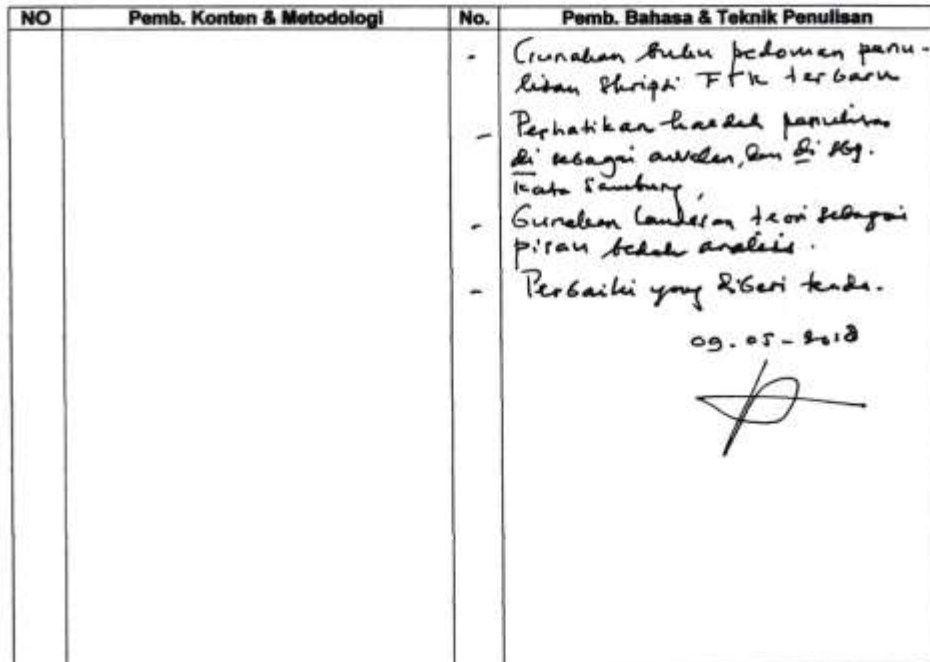 NO Pemb. Konten & Metodologi No. Pemb. Bahasa & Teknik Penulisan
- Gunakan buku pedoman penu-
lisan Skripsi FTK terbaru
- Perhatikan kaedah penulisan
di sebagai awalan, dan di sbg.
kata sambung,
- Gunakan landasan teori sebagai
pisau bedah analisis.
- Perbaiki yang diberi tanda.
09-05-2018